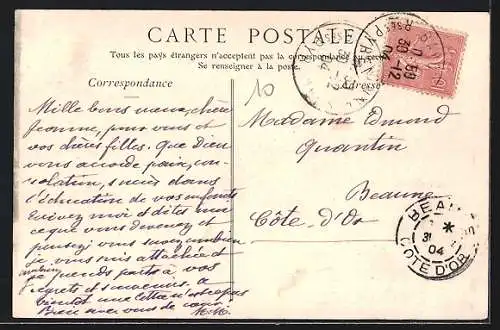 CARTE POSTALE
Tous les pays étrangers n'acceptent pas la correspondance au recto
Se renseigner à la poste.
Correspondance
Adresse
10
Mille bons vœux, chère
Jeanne, pour vous et
vos chères filles. Que Dieu
vous accorde paix, con-
solation, succès dans
l'éducation de vos enfants
Ecrivez moi et dites moi
ce que vous devenez et
pensez vous savez combien
je vous suis attachée et
combien je prends part à vos
regrets et souvenirs, à
bientôt une lettre n'est-ce pas
Bien avec vous de cœur
M.M.
Madame Edmond
Quantin
Beaune
Côte d'Or
30 -12
04
BEAUNE
31
04
COTE D'OR